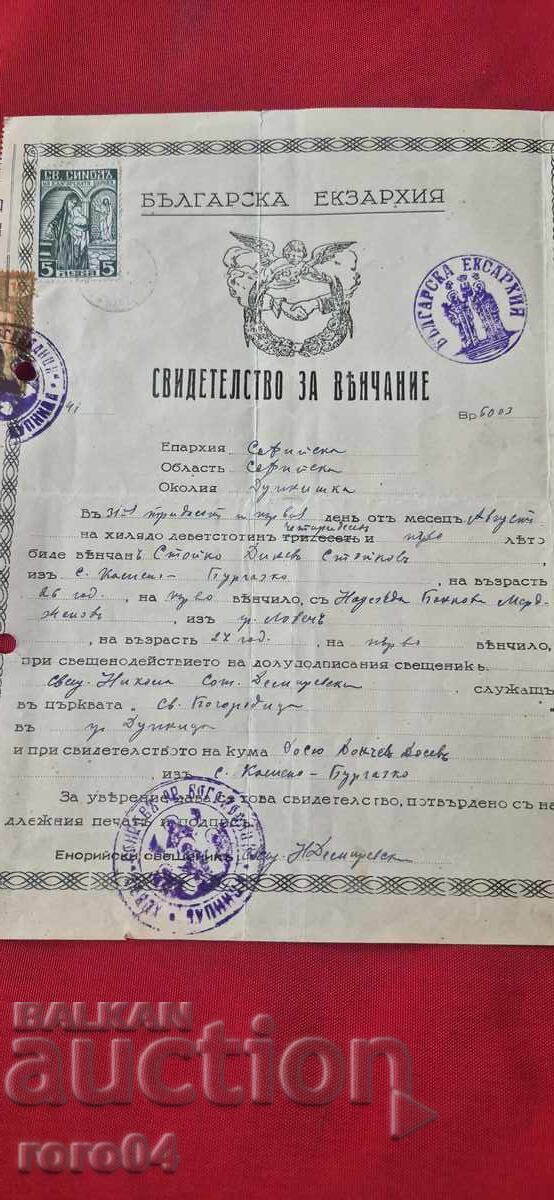 СВ. СИНОДЪ
НА БЪЛГАРСКАТА ЦЪРКВА
5 ЛЕВА 5
БЪЛГАРСКА ЕКЗАРХИЯ
БЪЛГАРСКА ЕКСАРХИЯ
СВИДЕТЕЛСТВО ЗА ВѢНЧАНИЕ
41
Вр. 6003
Епархия Софийска
Область Софийска
Околия Дупнишка
Въ 31й тридесет и първи день отъ месецъ Августъ
четиридесеть
на хилядо деветстотинъ тридесеть и първо лѣто
биде вѣнчанъ Стойко Динев Стойковъ
изъ с. Камено - Бургазко, на възрасть
26 год, на първо вѣнчило, съ Надежда
изъ гр. Ловечъ
, на възрасть 27 год. на първо вѣнчило,
при свещенодействието на долуподписания свещеникъ
Свещ. Никола служащъ
въ църквата „Св. Богородица
въ гр. Дупница
и при свидетелството на кума Досю Дончев Досевъ
изъ с. Камено - Бургазко
За уверение дава се това свидетелство, потвърдено съ на
длежния печатъ и подписъ.
Енорийски свещеникъ: Свещ. Н.
BALKAN
auction
roro04